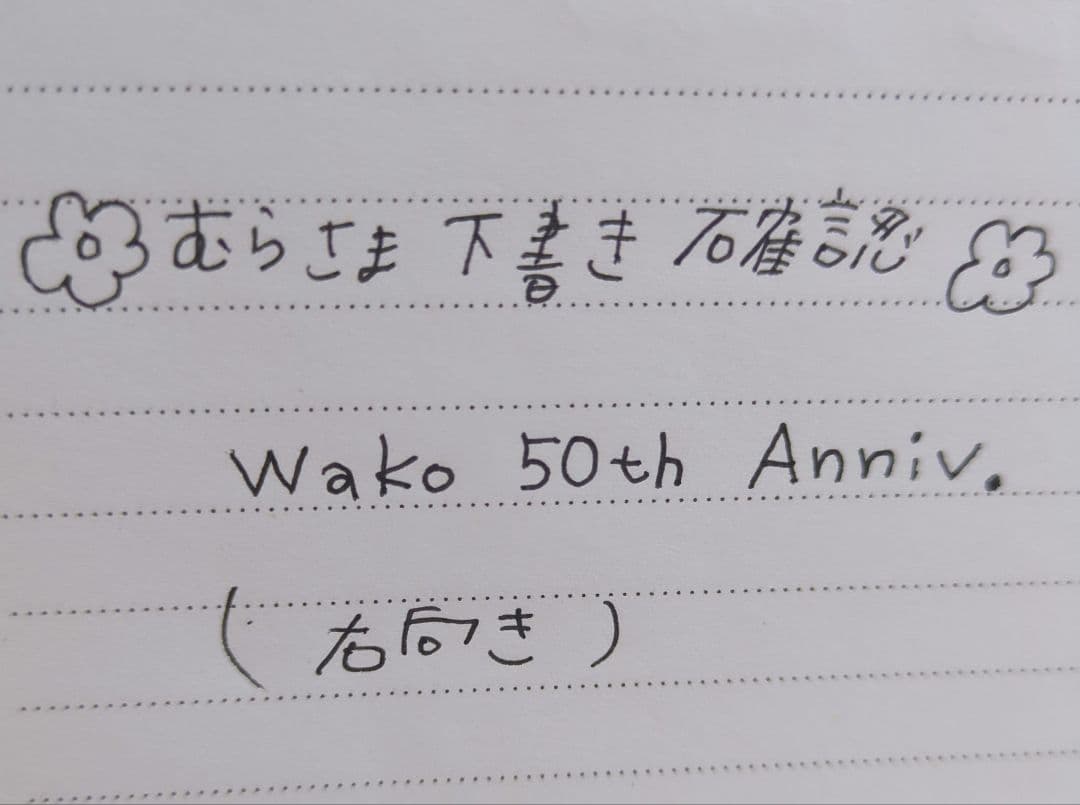 むらさま 下書き 確認
Wako 50th Anniv.
(右向き)